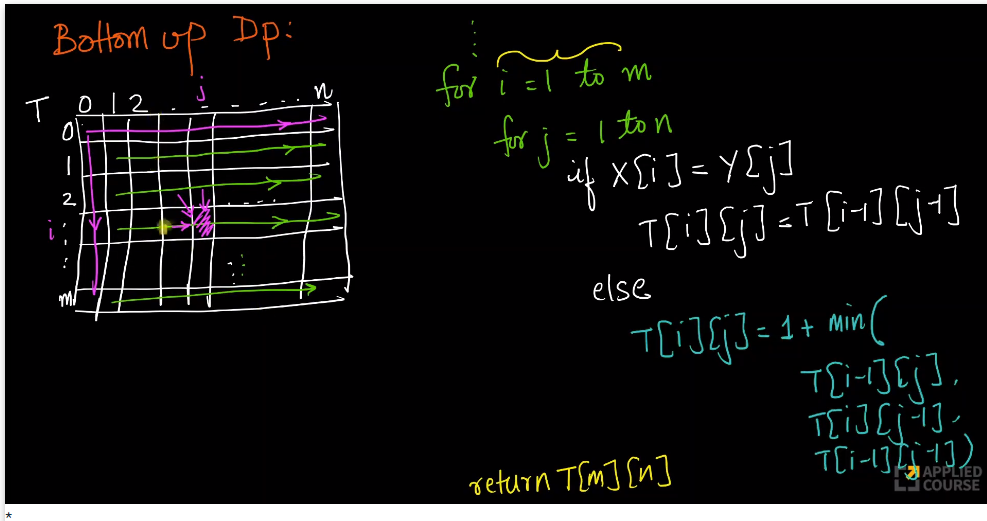 Bottom up Dp:
j
T 0 1 2 . . . . . . n
0
1
2
i
m
for i = 1 to m
for j = 1 to n
if X[i] = Y[j]
T[i][j] = T[i-1][j-1]
else
T[i][j] = 1 + min(
T[i-1][j],
T[i][j-1],
T[i-1][j-1])
return T[m][n]
APPLIED
COURSE
*